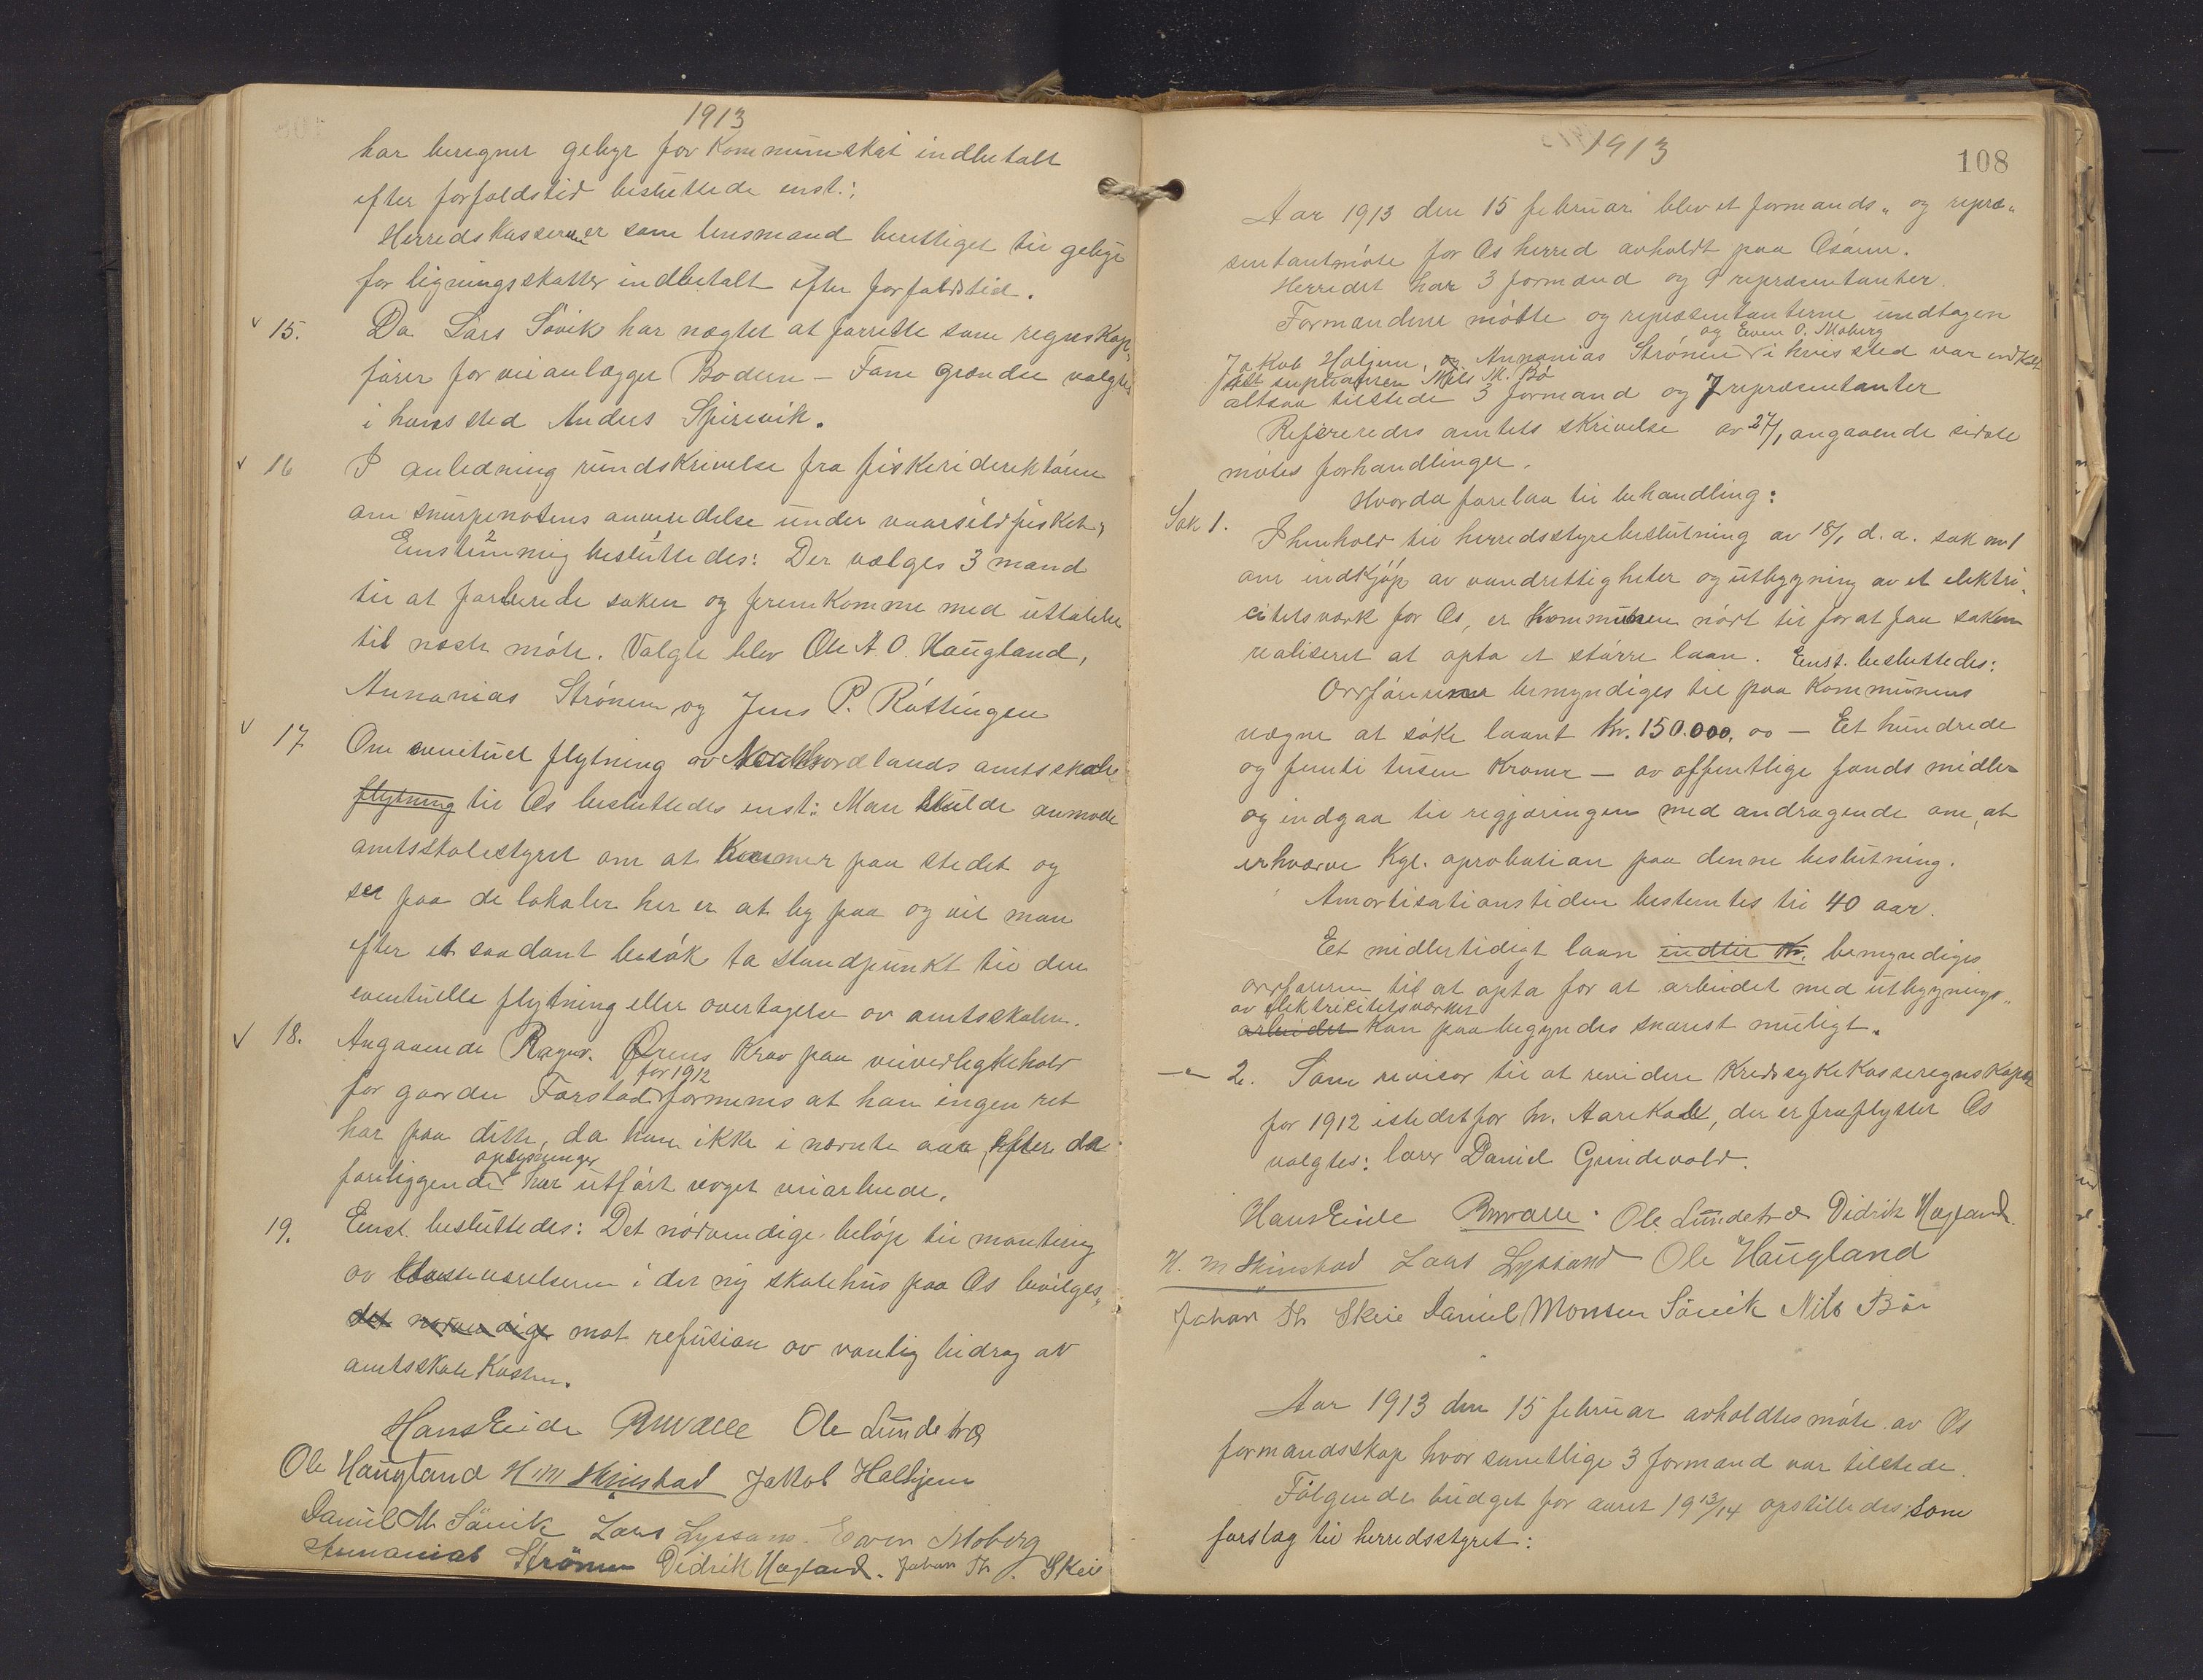 1913
har beregnet gebyr for Kommuneskat indbetalt
efter forfaldstid besluttede enst.:
Herredskassereren er som lensmand berettiget til gebyr
for ligningsskatter indbetalt efter forfaldstid.
15. Da Lars Søvik har nægtet at forrette som regnskaps
fører for veianlægget Bodeen – Fane Grændse valgtes
i hans sted Anders Spirevik.
16 I anledning rundskrivelse fra fiskeridirektøren
om snurpenotens anvendelse under vaarsildfisket,
Enstemmig besluttedes: Der vælges 3 mænd
til at forberede saken og fremkomme med uttalelse
til næste møte. Valgte blev Ole A. O. Haugland,
Annanias Strønen og Jens P. Røttingen
17 Om eventuel flytning av Nordhordlands amtsskole
flytning til Os besluttedes enst: Man skulde anmode
amtsskolestyret om at kommer paa stedet og
ser paa de lokaler her er at by paa og vil man
efter et saadant besøk ta standpunkt til den
eventuelle flytning eller overtagelse av amtsskolen.
18. Angaaende Ragnv. Ørens krav paa veivedlikehold
for 1912
for gaarden Forstad formenes at han ingen ret
har paa dette, da han ikke i nævnte aar, efter de
oplysninger
foreliggende har utført noget veiarbeide.
19. Enst. besluttedes: Det nødvendige beløp til montering
av klasseværelserne i det ny skolehus paa Os bevilges,
det nødvendige mot refusion av vanlig bidrag av
amtsskolekassen.
Hans Eide Ole Lundetræ
Ole Haugland N M Skinstad Jakob Halhjem
Daniel M. Søvik Lars Lyssand. Even Moberg
Annanias Strønen Didrik Hagland. Johan Th. Skeie
1913
108
Aar 1913 den 15 februar blev et formands„ og repræ„
sentantmøte for Os herred avholdt paa Osøren.
Herredet har 3 formænd og 9 repræsentanter.
Formændene møtte og repræsentanterne undtagen
og Even O. Moberg
Jakob Haljem, og Annanias Strønen i hvis sted var indkaldt
suplianten Nils M. Bø
altsaa tilstede 3 formænd og 7 repræsentanter
Refereredes amtets skrivelse av 27/1 angaaende sidste
møtes forhandlinger.
Hvorda forelaa til behandling:
Sak 1. I henhold til herredsstyrebeslutning av 18/1 d. a. sak nr 1
om indkjøp av vandrettigheter og utbygning av et elektri„
citetsværk for Os, er kommunen nødt til for at faa saken
realiseret at opta et større laan. Enst. besluttedes:
Ordføreren bemyndiges til paa kommunens
vegne at søke laant Kr. 150.000.00 – Et hundrede
og femti tusen Kroner – av offentlige fonds midler
og indgaa til regjeringen med andragende om, at
erhværve Kgl. aprobation paa denne beslutning.
Amortisationstiden bestemtes til 40 aar.
Et midlertidigt laan indtil Kr. bemyndiges
ordføreren til at opta for at arbeidet med utbygnings„
av elektricitetsværket
arbeidet kan paabegyndes snarest muligt.
–„– 2. Som revisor til at revidere Kredssykekasseregnskapet
for 1912 istedetfor hr. Aarekol, der er fraflyttet Os
valgtes: lærer Daniel Grindevold.
Hans Eide Ole Lundetræ Didrik Hagland.
N. M Skinstad Lars Lyssand Ole Haugland
Johan Th Skeie Daniel Monsen Søvik Nils Bøe
Aar 1913 den 15 februar avholdtes møte av Os
formandsskap hvor samtlige 3 formænd var tilstede.
Følgende budget for aaret 1913/14 opstilledes som
forslag til herredsstyret: